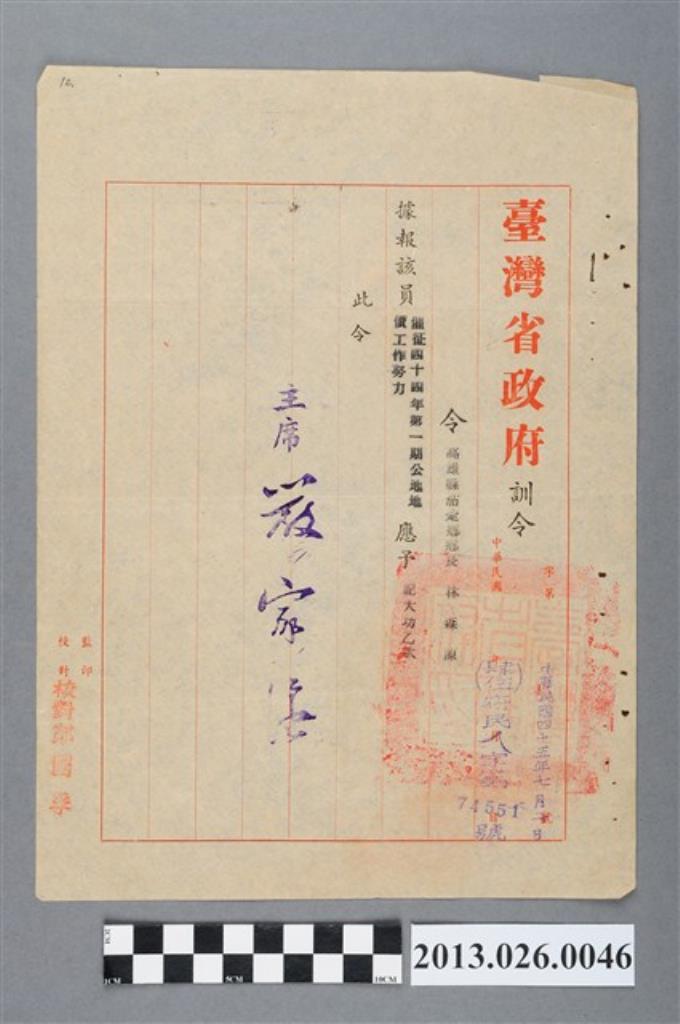 12
臺灣省政府訓令
字第
號
中華民國
中華民國四十五年七月二日
(肆伍)府民人字第
74551
號
令高雄縣茄萣鄉鄉長 林
據報該員催征四十四年第一期公地地
價工作努力
應予記大功乙次
此令
主席 嚴家淦
監印
校對
校對
2CM
1CM
5CM
10CM
2013.026.0046